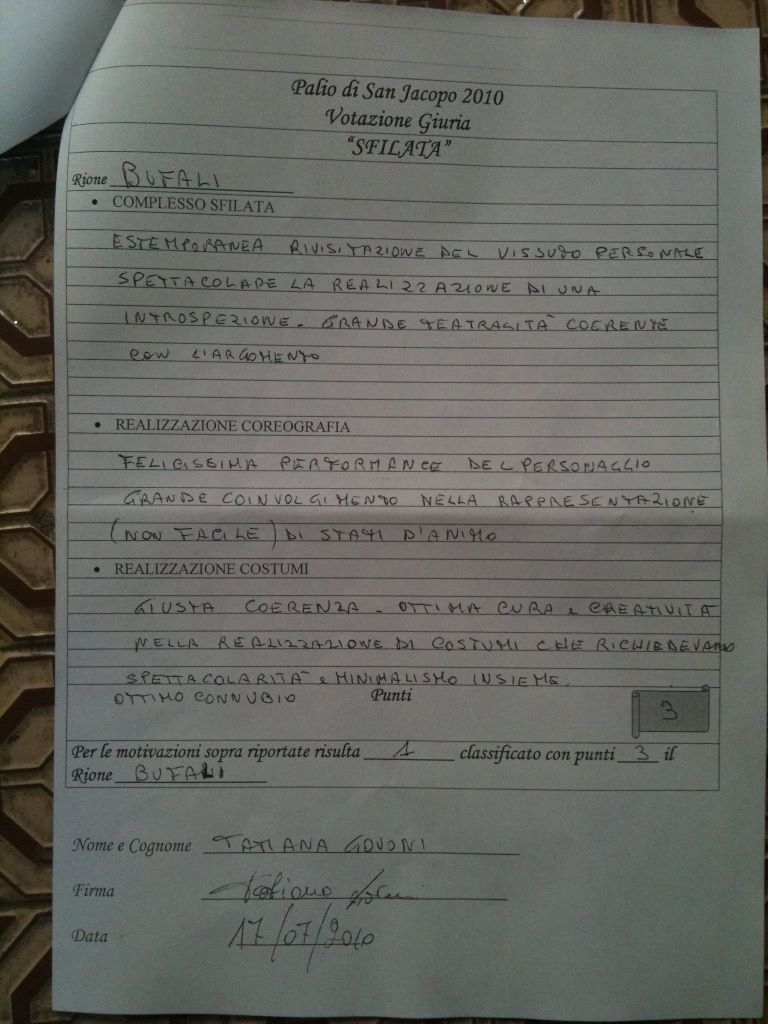 Palio di San Jacopo 2010
Votazione Giuria
"SFILATA"
Rione BUFALI
• COMPLESSO SFILATA
ESTEMPORANEA RIVISITAZIONE DEL VISSUTO PERSONALE
SPETTACOLARE LA REALIZZAZIONE DI UNA
INTROSPEZIONE. GRANDE TEATRALITÀ COERENTE
CON L'ARGOMENTO
• REALIZZAZIONE COREOGRAFIA
FELICISSIMA PERFORMANCE DEL PERSONAGGIO
GRANDE COINVOLGIMENTO NELLA RAPPRESENTAZIONE
(NON FACILE) DI STATI D'ANIMO
• REALIZZAZIONE COSTUMI
GIUSTA COERENZA - OTTIMA CURA e CREATIVITÀ
NELLA REALIZZAZIONE DI COSTUMI CHE RICHIEDEVANO
SPETTACOLARITÀ e MINIMALISMO INSIEME.
OTTIMO CONNUBIO Punti 3
Per le motivazioni sopra riportate risulta 1 classificato con punti 3 il
Rione BUFALI
Nome e Cognome TATIANA GOVONI
Firma Tatiana
Data 17/07/2010